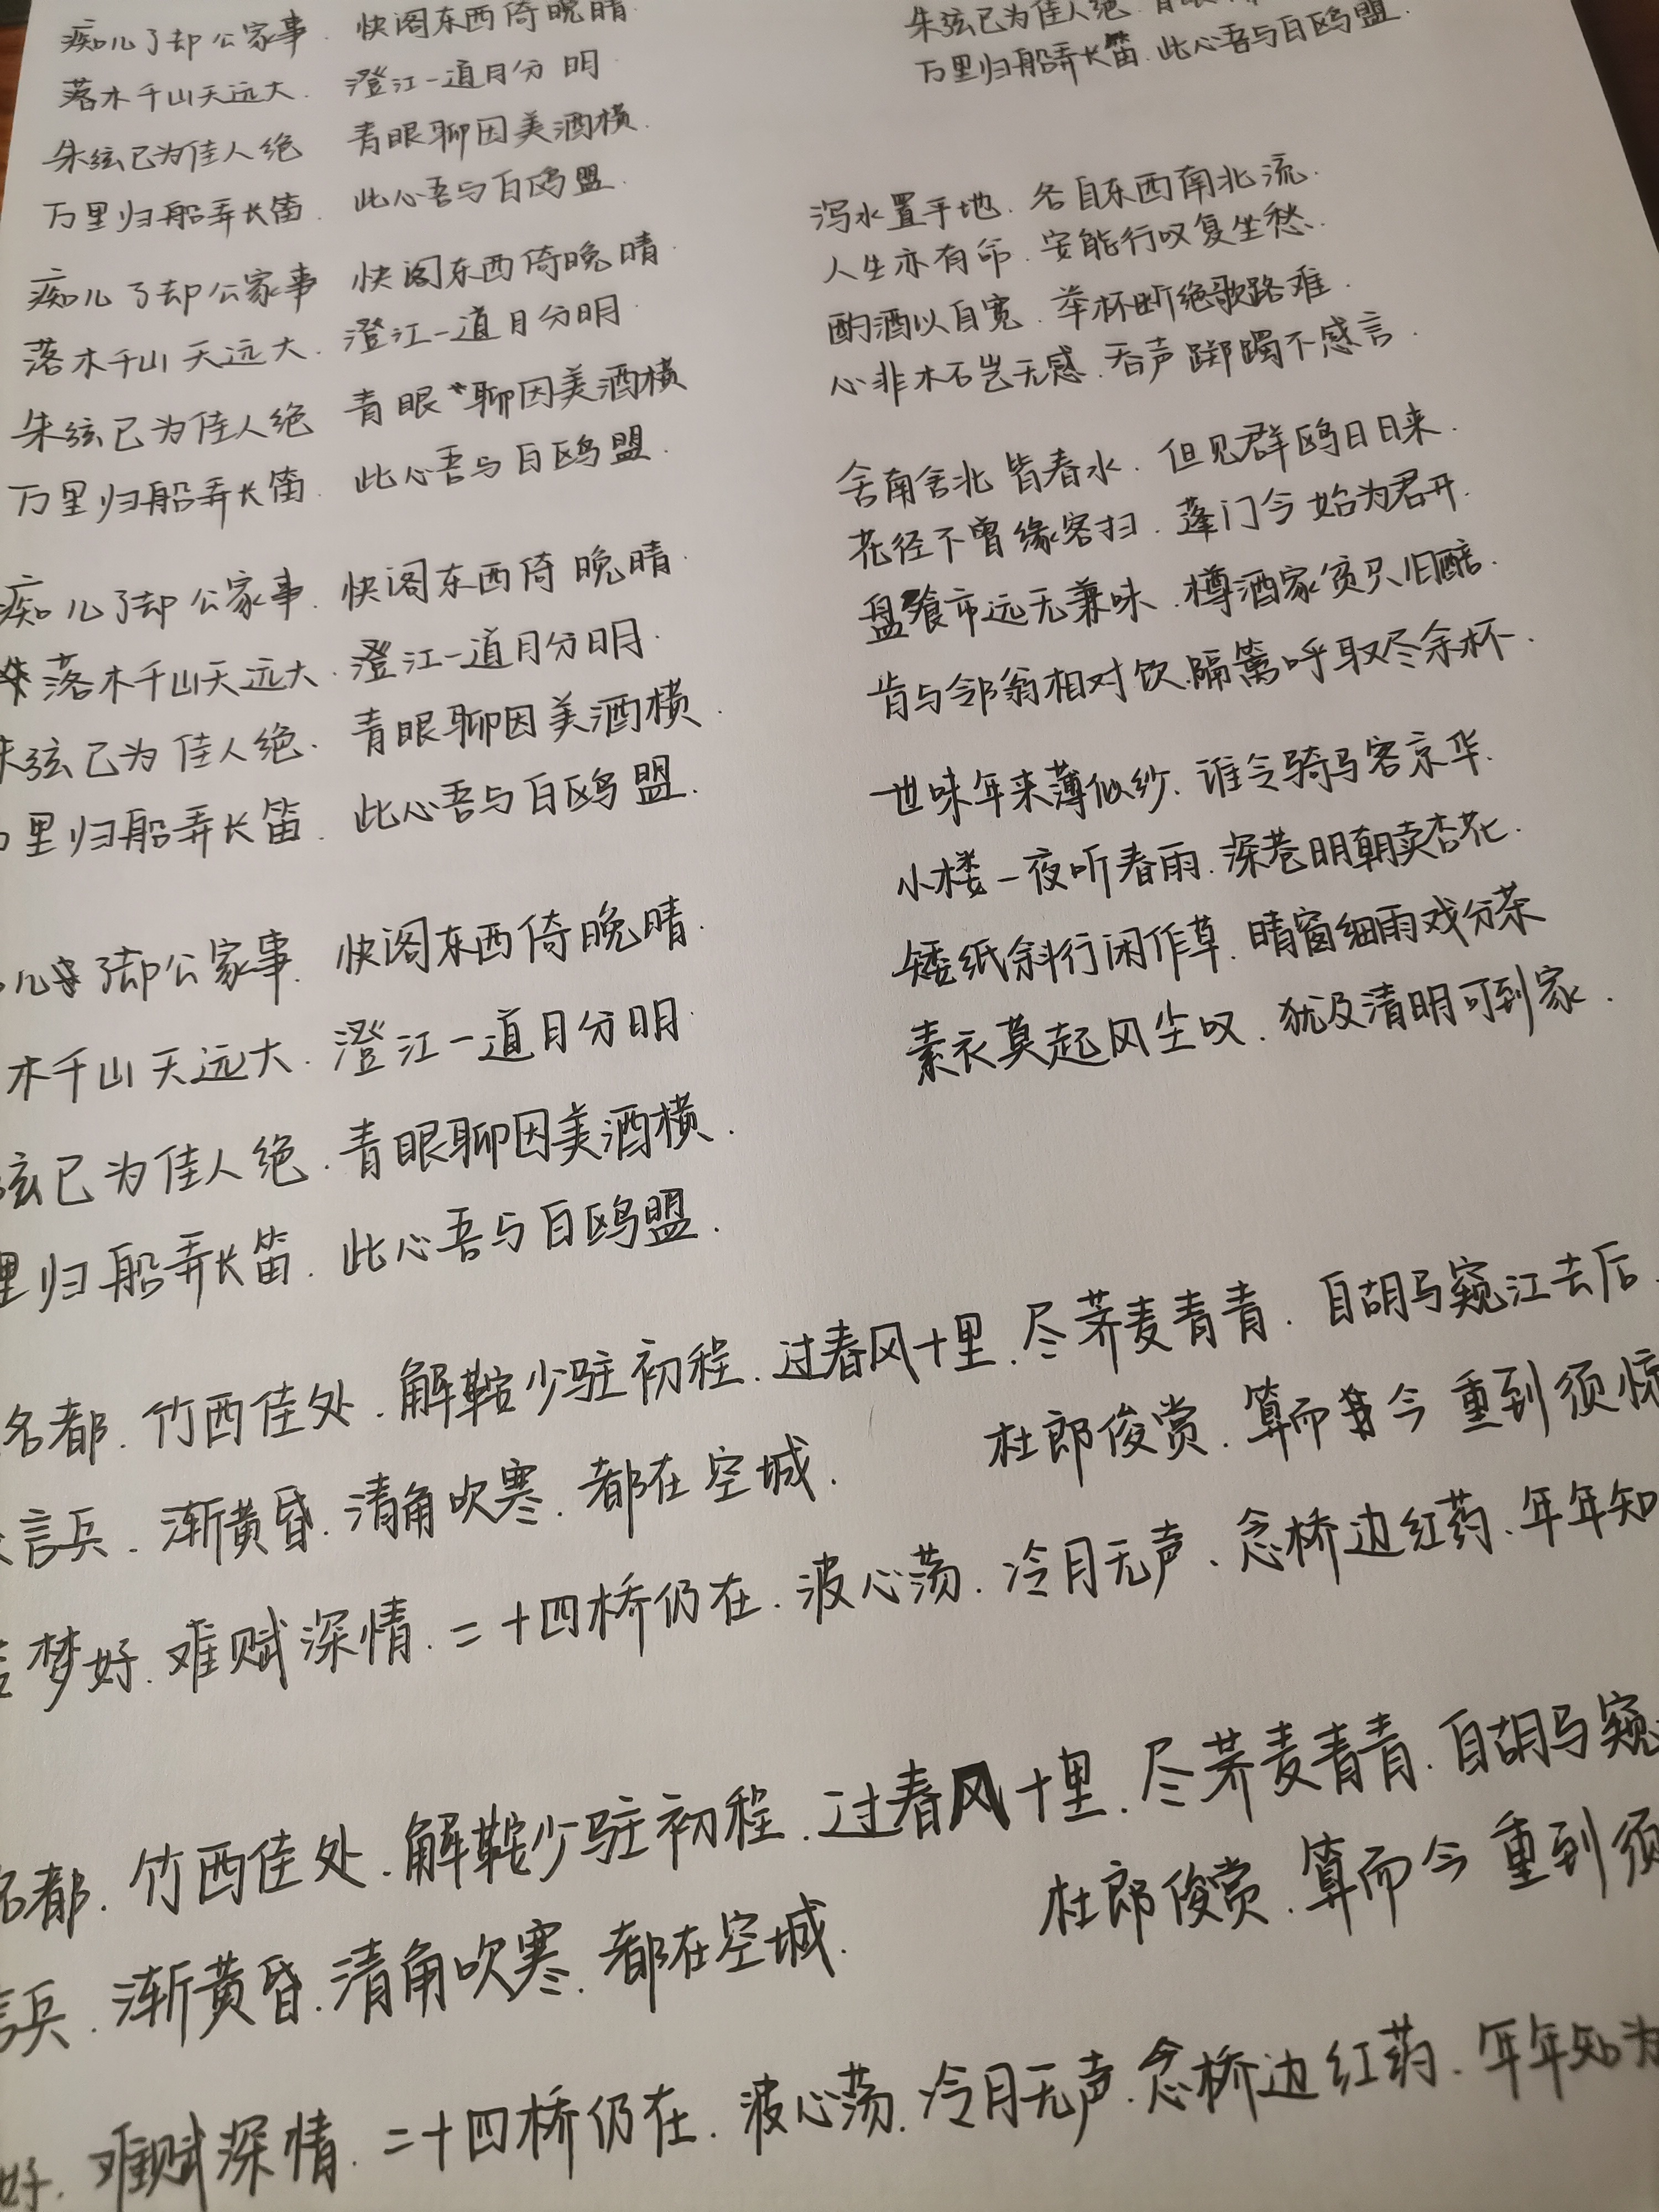 痴儿了却公家事. 快阁东西倚晚晴.
落木千山天远大. 澄江一道月分明.
朱弦已为佳人绝 青眼聊因美酒横.
万里归船弄长笛. 此心吾与白鸥盟.
痴儿了却公家事 快阁东西倚晚晴.
落木千山天远大. 澄江一道月分明.
朱弦已为佳人绝 青眼聊因美酒横
万里归船弄长笛. 此心吾与白鸥盟.
痴儿了却公家事. 快阁东西倚晚晴.
落木千山天远大. 澄江一道月分明.
弦已为佳人绝. 青眼聊因美酒横.
里归船弄长笛. 此心吾与白鸥盟.
儿了却公家事. 快阁东西倚晚晴.
木千山天远大. 澄江一道月分明.
弦已为佳人绝. 青眼聊因美酒横.
里归船弄长笛. 此心吾与白鸥盟.
朱弦已为佳人绝. 青眼
万里归船弄长笛. 此心吾与白鸥盟.
泻水置平地. 各自东西南北流.
人生亦有命. 安能行叹复坐愁.
酌酒以自宽. 举杯断绝歌路难.
心非木石岂无感. 吞声踯躅不感言.
舍南舍北皆春水. 但见群鸥日日来.
花径不曾缘客扫. 蓬门今始为君开.
盘飧市远无兼味. 樽酒家贫只旧醅.
肯与邻翁相对饮. 隔篱呼取尽余杯.
世味年来薄似纱. 谁令骑马客京华.
小楼一夜听春雨. 深巷明朝卖杏花.
矮纸斜行闲作草. 晴窗细雨戏分茶
素衣莫起风尘叹. 犹及清明可到家.
名都. 竹西佳处. 解鞍少驻初程. 过春风十里. 尽荠麦青青. 自胡马窥江去后.
言兵. 渐黄昏. 清角吹寒. 都在空城. 杜郎俊赏. 算而今重到须惊
梦好. 难赋深情. 二十四桥仍在. 波心荡. 冷月无声. 念桥边红药. 年年知
名都. 竹西佳处. 解鞍少驻初程. 过春风十里. 尽荠麦青青. 自胡马窥
言兵. 渐黄昏. 清角吹寒. 都在空城. 杜郎俊赏. 算而今重到须
好. 难赋深情. 二十四桥仍在. 波心荡. 冷月无声. 念桥边红药. 年年知为